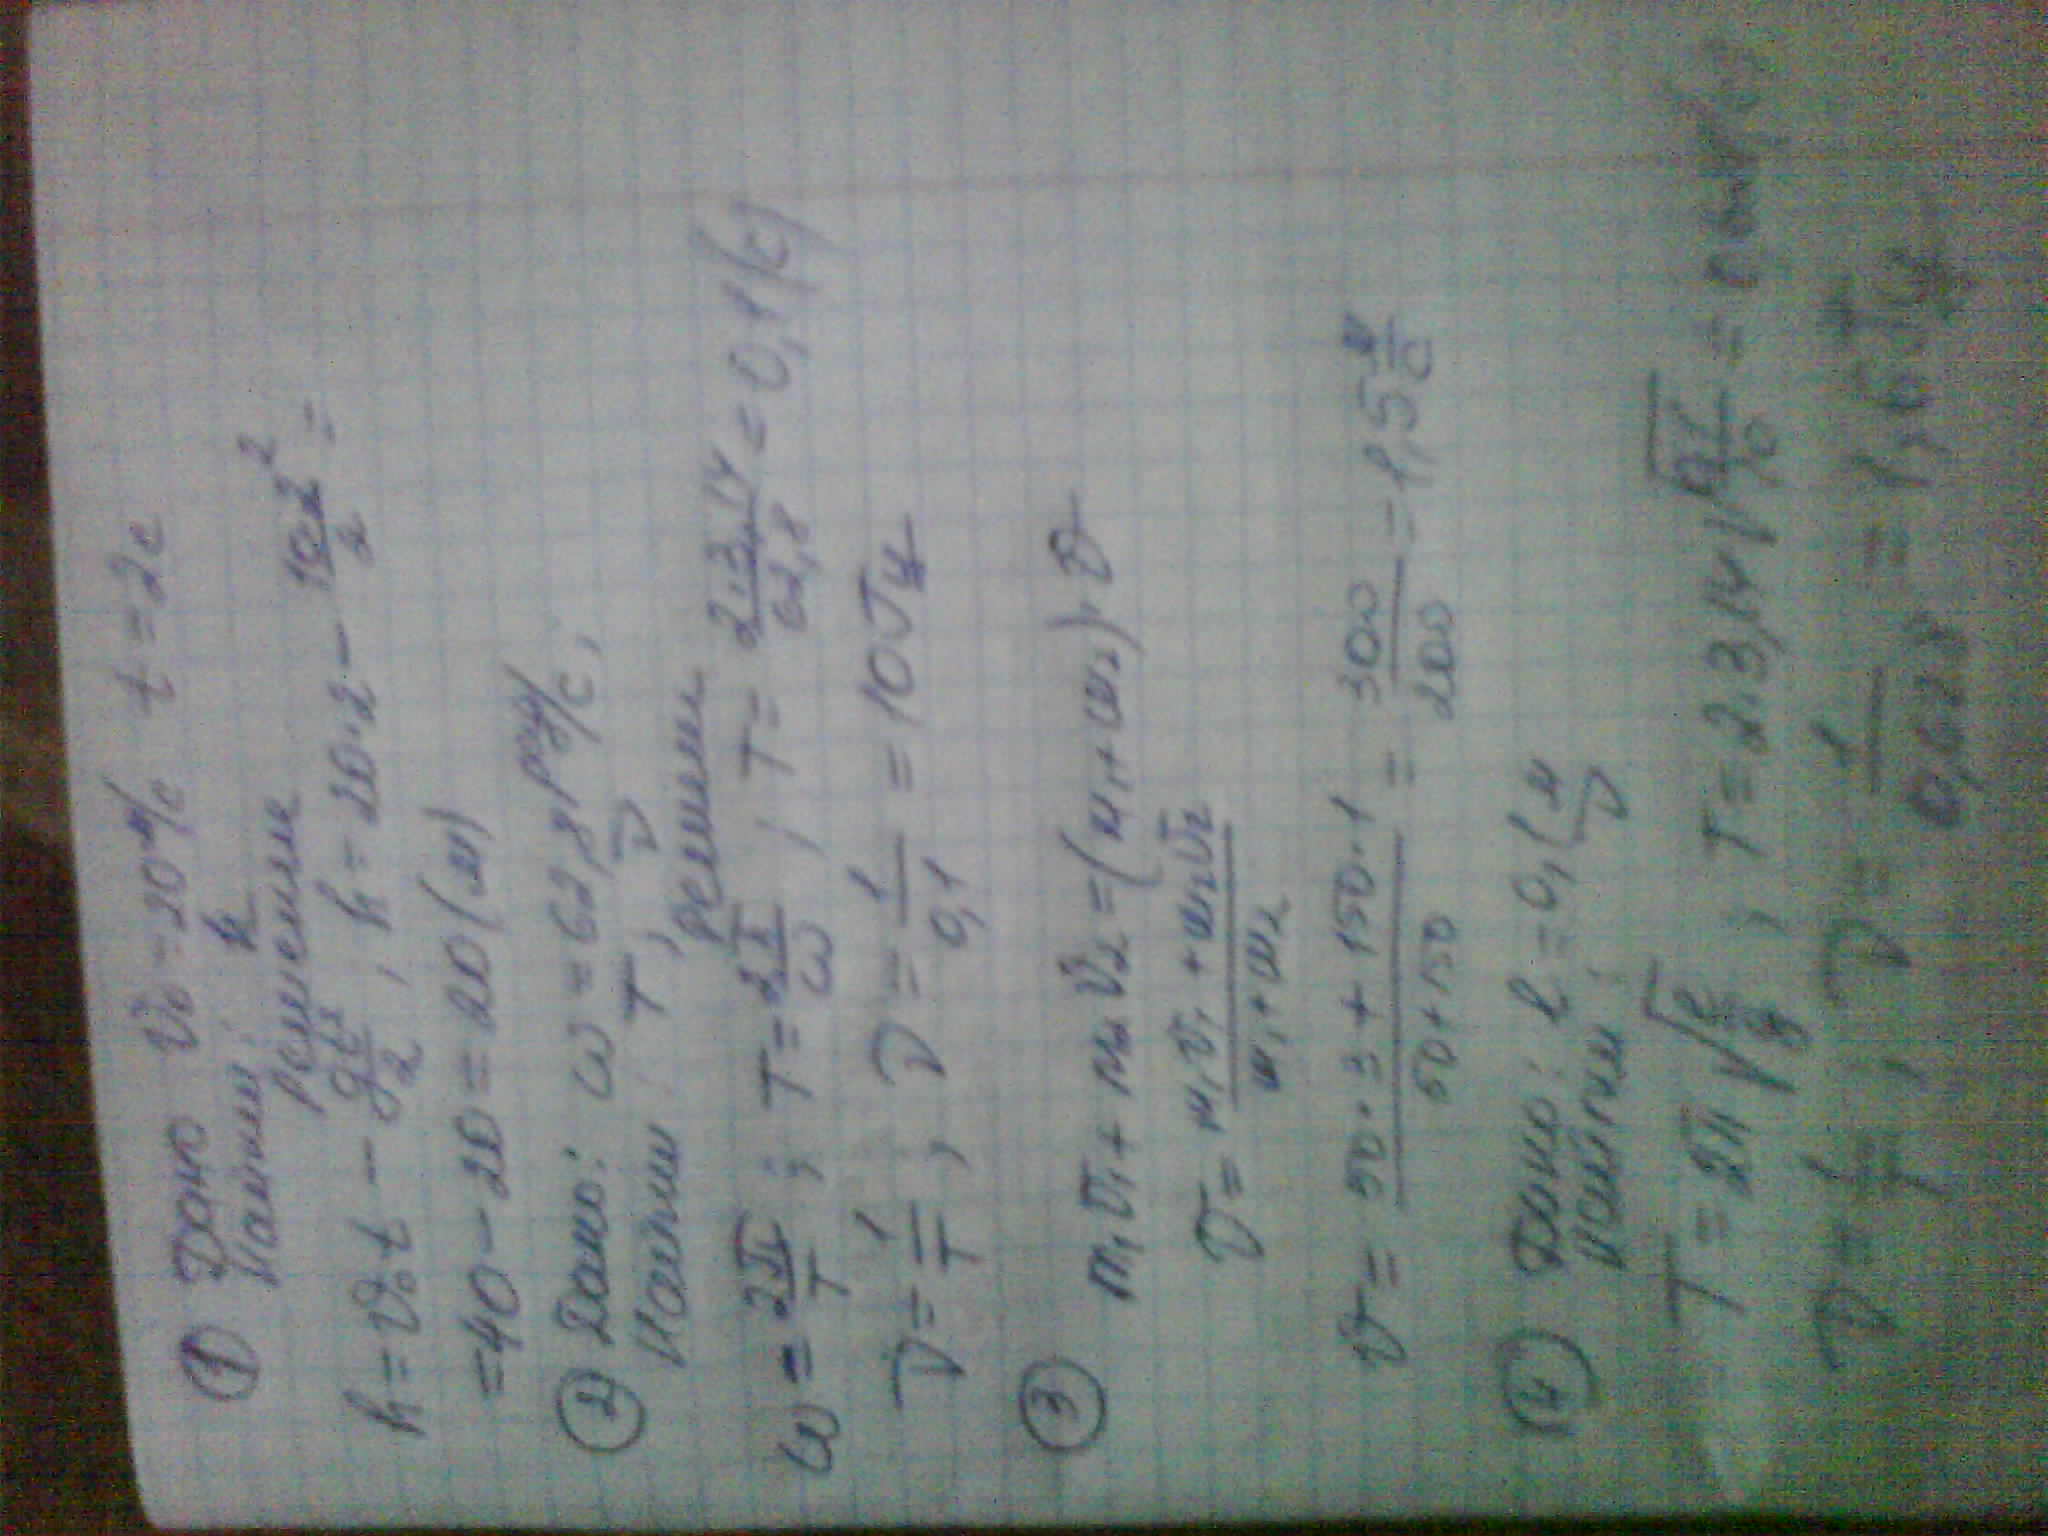 ① Дано V₀=20 м/с t=2с
Найти: h
Решение
h=V₀t - gt²/2 ; h=20·2 - 10·2²/2 =
=40-20=20(м)
② Дано: ω=62,8 рад/с,
Найти T, ν
Решение
ω=2π/T ; T=2π/ω , T=2·3,14/62,8=0,1(с)
ν=1/T , ν=1/0,1=10Гц
③ m₁v₁+m₂v₂=(m₁+m₂)·v
v=m₁v₁+m₂v₂/m₁+m₂
v=50·3+150·1/50+150=300/200=1,5 м/с
④ Дано: l=0,1м
Найти: ν
T=2π√l/g ; T=2·3,14√0,1/10=
ν=1/T , ν=1/ =1,6Гц